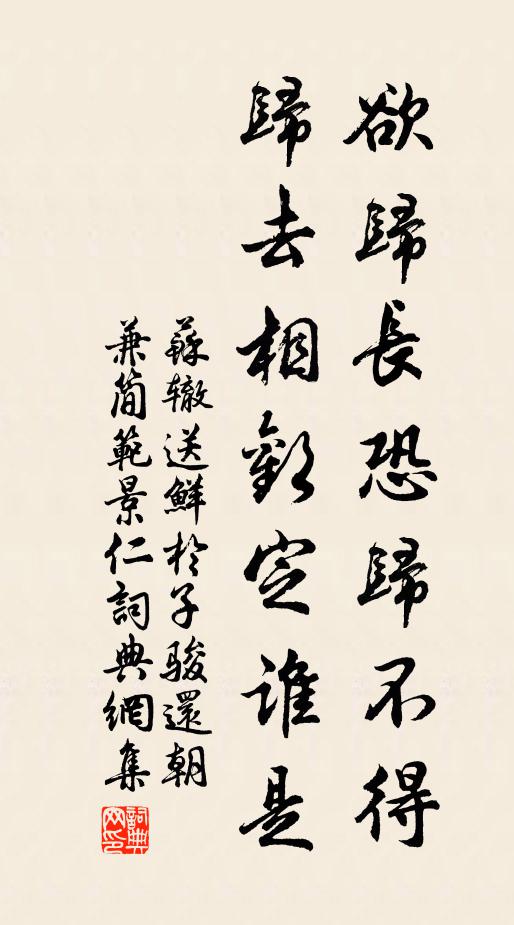 欲歸長恐歸不得
歸去相歡定誰是
蘇轍送鮮於子駿還朝
兼簡範景仁詞典網集
詞典网印